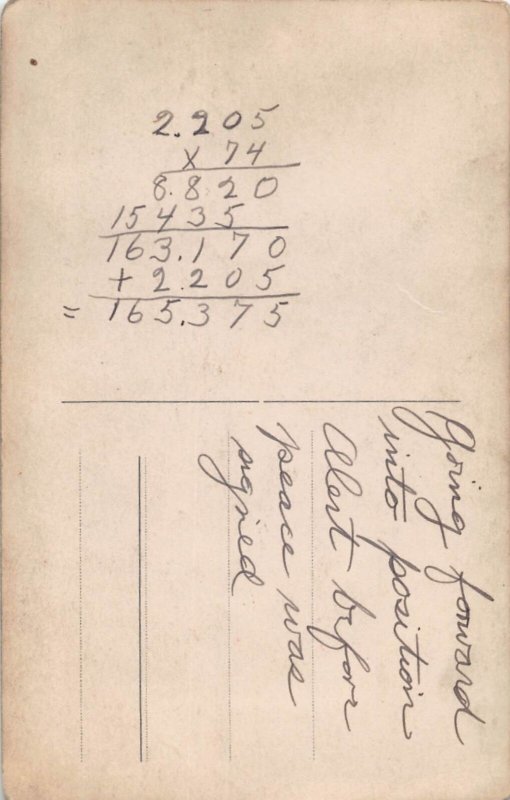 2.205
x 74
8.820
15435
163.170
+ 2.205
= 165.375
Going forward
into position
Alert befor
peace was
signed